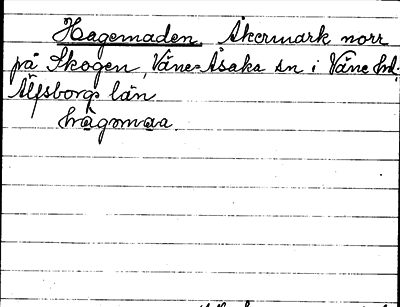 Hagemaden. Åkermark norr
på Skogen, Väne-Åsaka sn i Väne hd.
Älfsborgs län
hagomaa